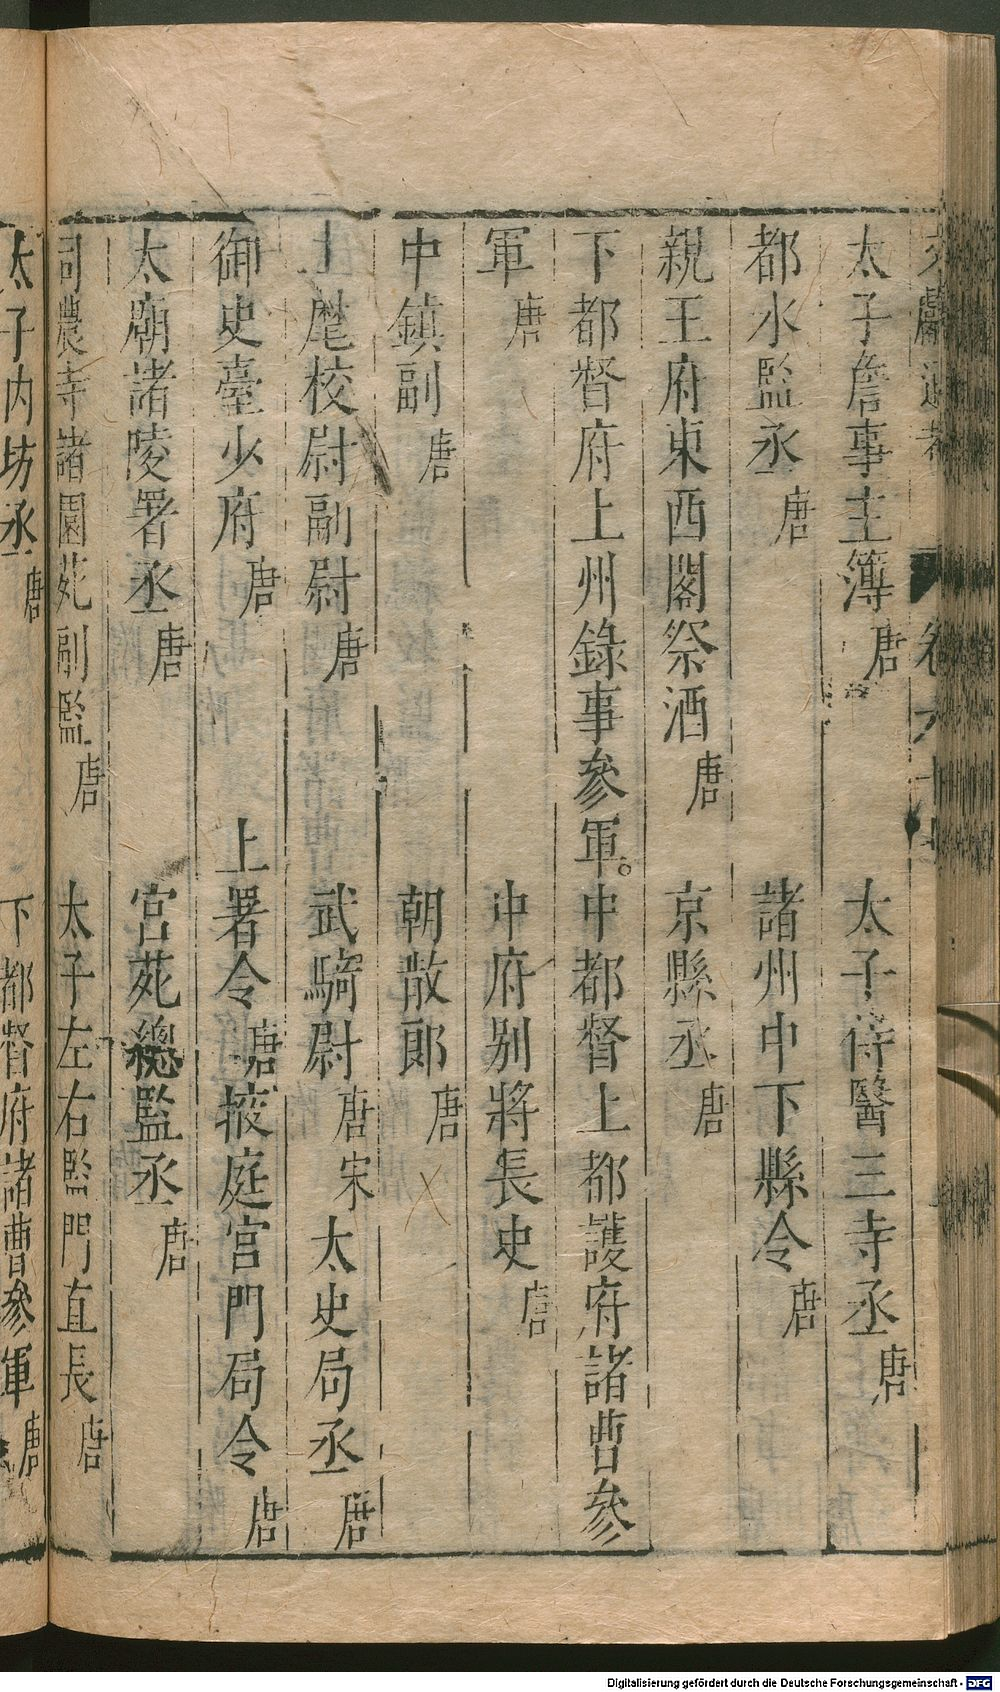 文獻通考 卷六十
太子詹事主簿唐 太子侍醫三寺丞唐
都水監丞唐 諸州中下縣令唐
親王府東西閣祭酒唐 京縣丞唐
下都督府上州錄事參軍。中都督上都護府諸曹參
軍唐 中府別將長史唐
中鎮副唐 朝散郎唐
上麾校尉副尉唐 武騎尉唐宋 太史局丞唐
御史臺少府唐 上署令唐 掖庭宮門局令唐
太廟諸陵署丞唐 宮苑總監丞唐
司農寺諸園苑副監唐 太子左右監門直長唐
太子內坊丞唐 下都督府諸曹參軍唐
Digitalisierung gefördert durch die Deutsche Forschungsgemeinschaft - DFG